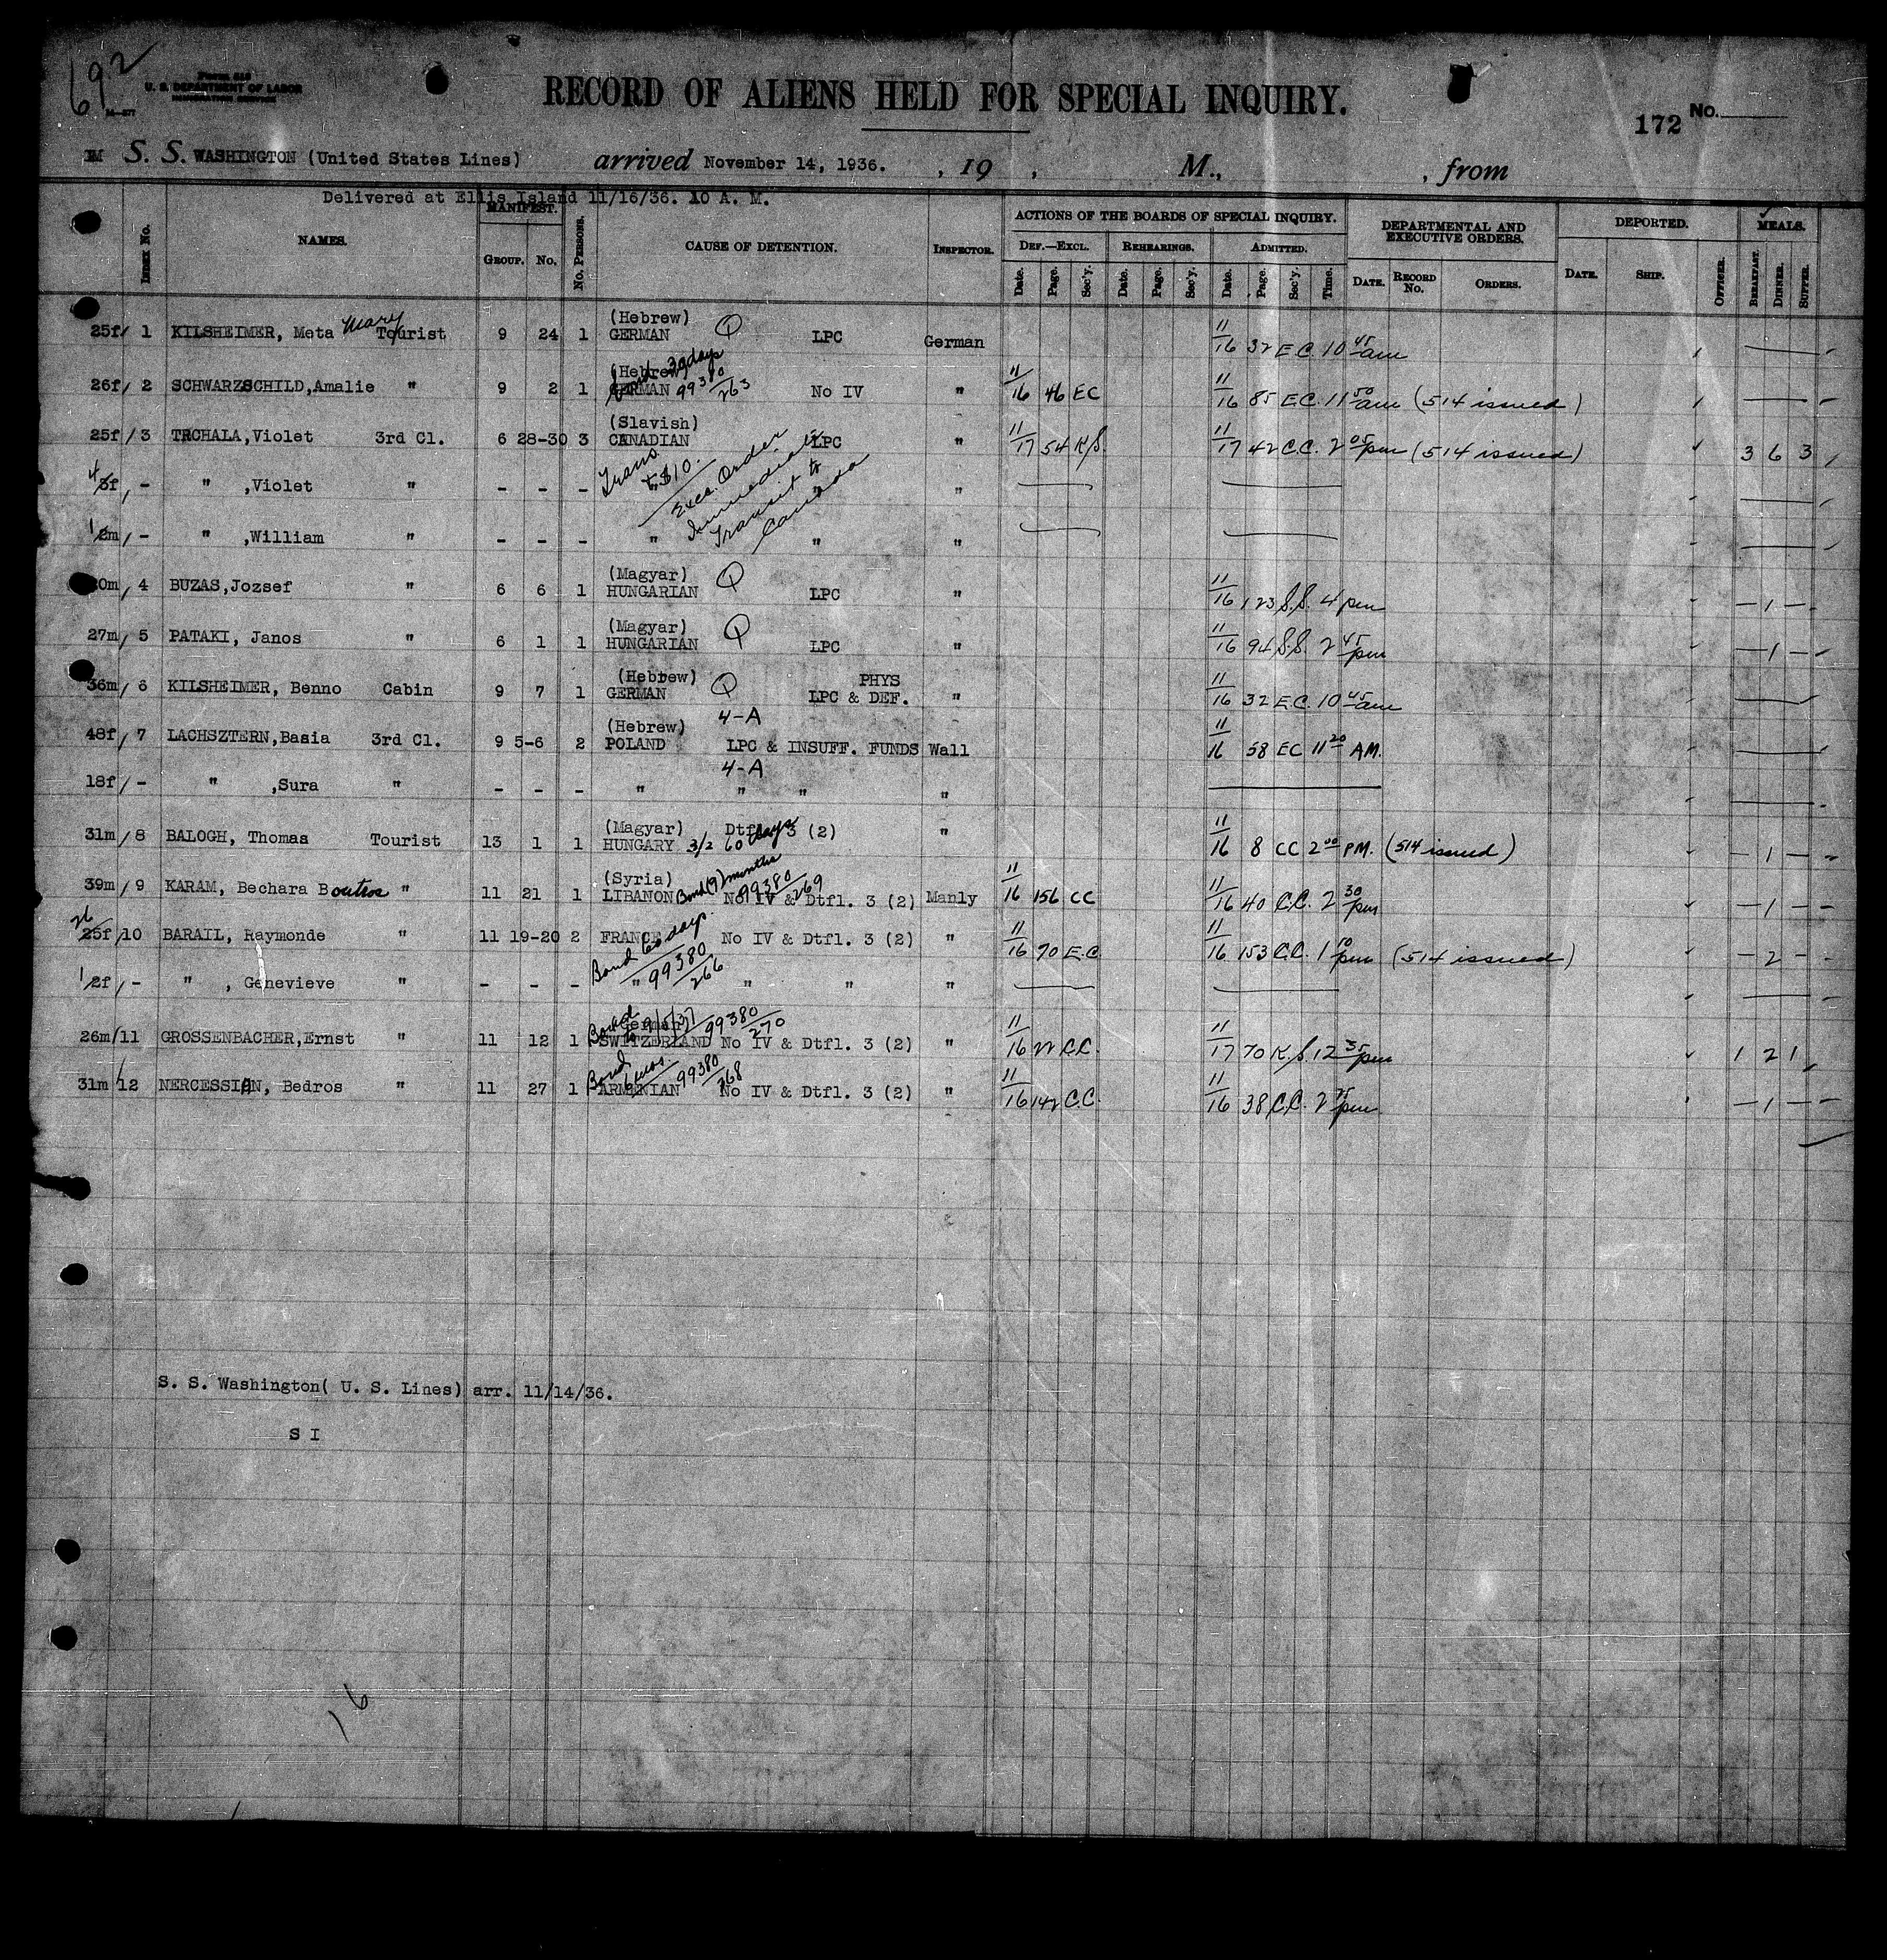 692
Form 518
U. S. DEPARTMENT OF LABOR
IMMIGRATION SERVICE
RECORD OF ALIENS HELD FOR SPECIAL INQUIRY.
172 No.
S. S. WASHINGTON (United States Lines) arrived November 14, 1936. , 19 , M., , from
Delivered at Ellis Island 11/16/36. 10 A. M.
INDEX No. NAMES. MANIFEST. GROUP. No. No. PERSONS. CAUSE OF DETENTION. INSPECTOR. ACTIONS OF THE BOARDS OF SPECIAL INQUIRY. DEF.—EXCL. Date. Page. Sec'y. REHEARINGS. Date. Page. Sec'y. ADMITTED. Date. Page. Sec'y. Time. DEPARTMENTAL AND EXECUTIVE ORDERS. DATE. RECORD No. ORDERS. DEPORTED. DATE. SHIP. OFFICER. MEALS. BREAKFAST. DINNER. SUPPER.
25f/ 1 KILSHEIMER, Meta Mary Tourist 9 24 1 (Hebrew) GERMAN Q LPC German 11/16 32 E.C. 10 45 am
26f/ 2 SCHWARZSCHILD, Amalie " 9 2 1 (Hebrew) GERMAN Bond 30 days 99380/263 No IV " 11/16 46 EC 11/16 85 E.C. 11 50 am (514 issued)
25f/ 3 TRCHALA, Violet 3rd Cl. 6 28-30 3 (Slavish) CANADIAN LPC " 11/17 54 K.S. 11/17 42 C.C. 2 05 pm (514 issued) 3 6 3
Trans. $10. Exec. Order Immediate Transit to Canada
4 3f/ - " , Violet " - - - " "
1/2m/ - " , William " - - - " " "
30m/ 4 BUZAS, Jozsef " 6 6 1 (Magyar) HUNGARIAN Q LPC " 11/16 123 S.S. 4 pm - 1 -
27m/ 5 PATAKI, Janos " 6 1 1 (Magyar) HUNGARIAN Q LPC " 11/16 94 S.S. 2 45 pm - 1 -
36m/ 6 KILSHEIMER, Benno Cabin 9 7 1 (Hebrew) GERMAN Q LPC & PHYS DEF. " 11/16 32 E.C. 10 45 am
48f/ 7 LACHSZTERN, Basia 3rd Cl. 9 5-6 2 (Hebrew) POLAND 4-A LPC & INSUFF. FUNDS Wall 11/16 58 EC 11 20 AM.
18f/ - " , Sura " - - - " 4-A " " "
31m/ 8 BALOGH, Thomas Tourist 13 1 1 (Magyar) HUNGARY Dtfl. 3 (2) 3/2 60 days " 11/16 8 CC 2 00 PM. (514 issued) - 1 -
39m/ 9 KARAM, Bechara Boutros " 11 21 1 (Syria) LIBANON Bond (9) months 99380/269 No IV & Dtfl. 3 (2) Manly 11/16 156 CC 11/16 40 C.C. 2 30 pm - 1 -
26 25f/ 10 BARAIL, Raymonde " 11 19-20 2 FRANCE Bond 60 days. 99380/266 No IV & Dtfl. 3 (2) " 11/16 70 E.C. 11/16 153 C.C. 1 10 pm (514 issued) - 2 -
1/2f/ - " , Genevieve " - - - " " " "
26m/ 11 GROSSENBACHER, Ernst " 11 12 1 (German) SWITZERLAND Bond to 9/1/37 99380/270 No IV & Dtfl. 3 (2) " 11/16 22 C.C. 11/17 70 K.S. 12 35 pm 1 2 1
31m/ 12 NERCESSIAN, Bedros " 11 27 1 ARMENIAN Bond 6 mos. 99380/268 No IV & Dtfl. 3 (2) " 11/16 142 C.C. 11/16 38 C.C. 2 pm - 1 -
S. S. Washington( U. S. Lines) arr. 11/14/36.
S I
16